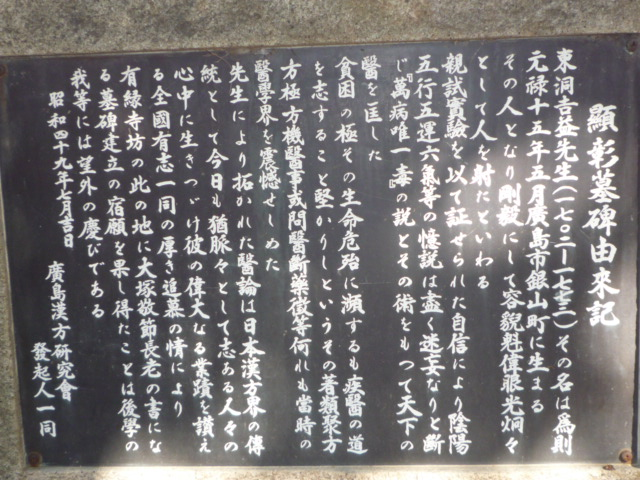 顯彰墓碑由來記
東洞吉益先生(一七〇二―一七七三)その名は爲則
元禄十五年五月廣島市銀山町に生まる
その人となり剛毅にして容貌魁偉眼光炯々
として人を射たといわる
親試實驗を以て証せられた自信により陰陽
五行五運六氣等の憶説は盡く迷妄なりと斷
じ『萬病唯一毒』の説とその術をもつて天下の
醫を匡した
貧困の極その生命危殆に瀕するも疾醫の道
を志すること堅かりしというその著類聚方
方極方機醫事或問醫斷藥徴等何れも當時の
醫學界を震憾せしめた
先生により拓かれた醫論は日本漢方界の傳
統として今日も猶脈々として志ある人々の
心中に生きつゞけ彼の偉大なる業蹟を讃え
る全國有志一同の厚き追慕の情により
有縁寺坊の此の地に大塚敬節長老の書にな
る墓碑建立の宿願を果し得たことは後學の
我等には望外の慶びである
昭和四十九年七月吉日
廣島漢方研究會
發起人一同